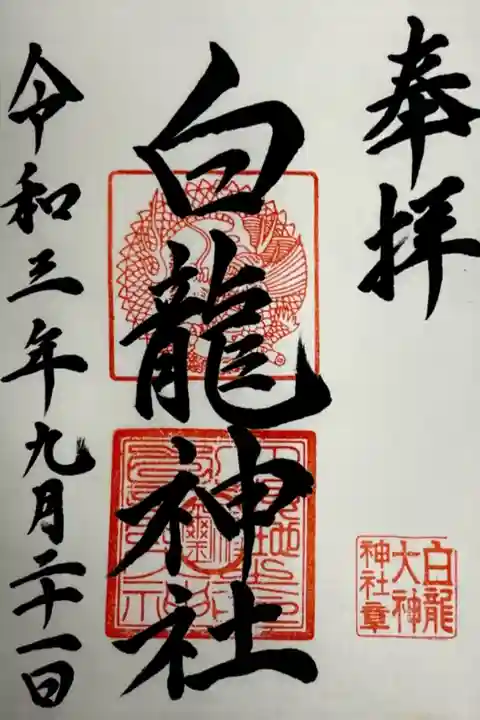 奉拝
白龍神社
令和三年九月二十一日
白龍
大神
神社章